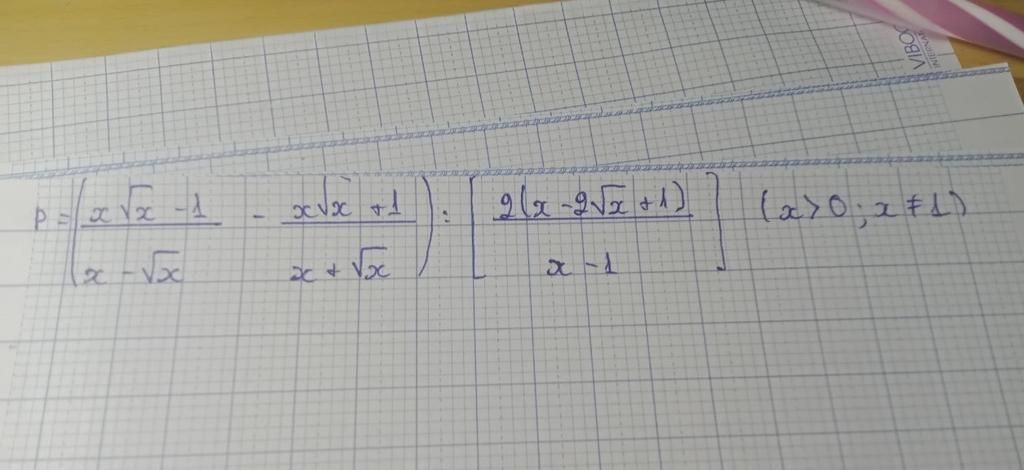 VIBO
P = ( (x√x - 1)/(x - √x) - (x√x + 1)/(x + √x) ) : [ 2(x - 2√x + 1)/(x - 1) ] (x > 0 ; x ≠ 1)